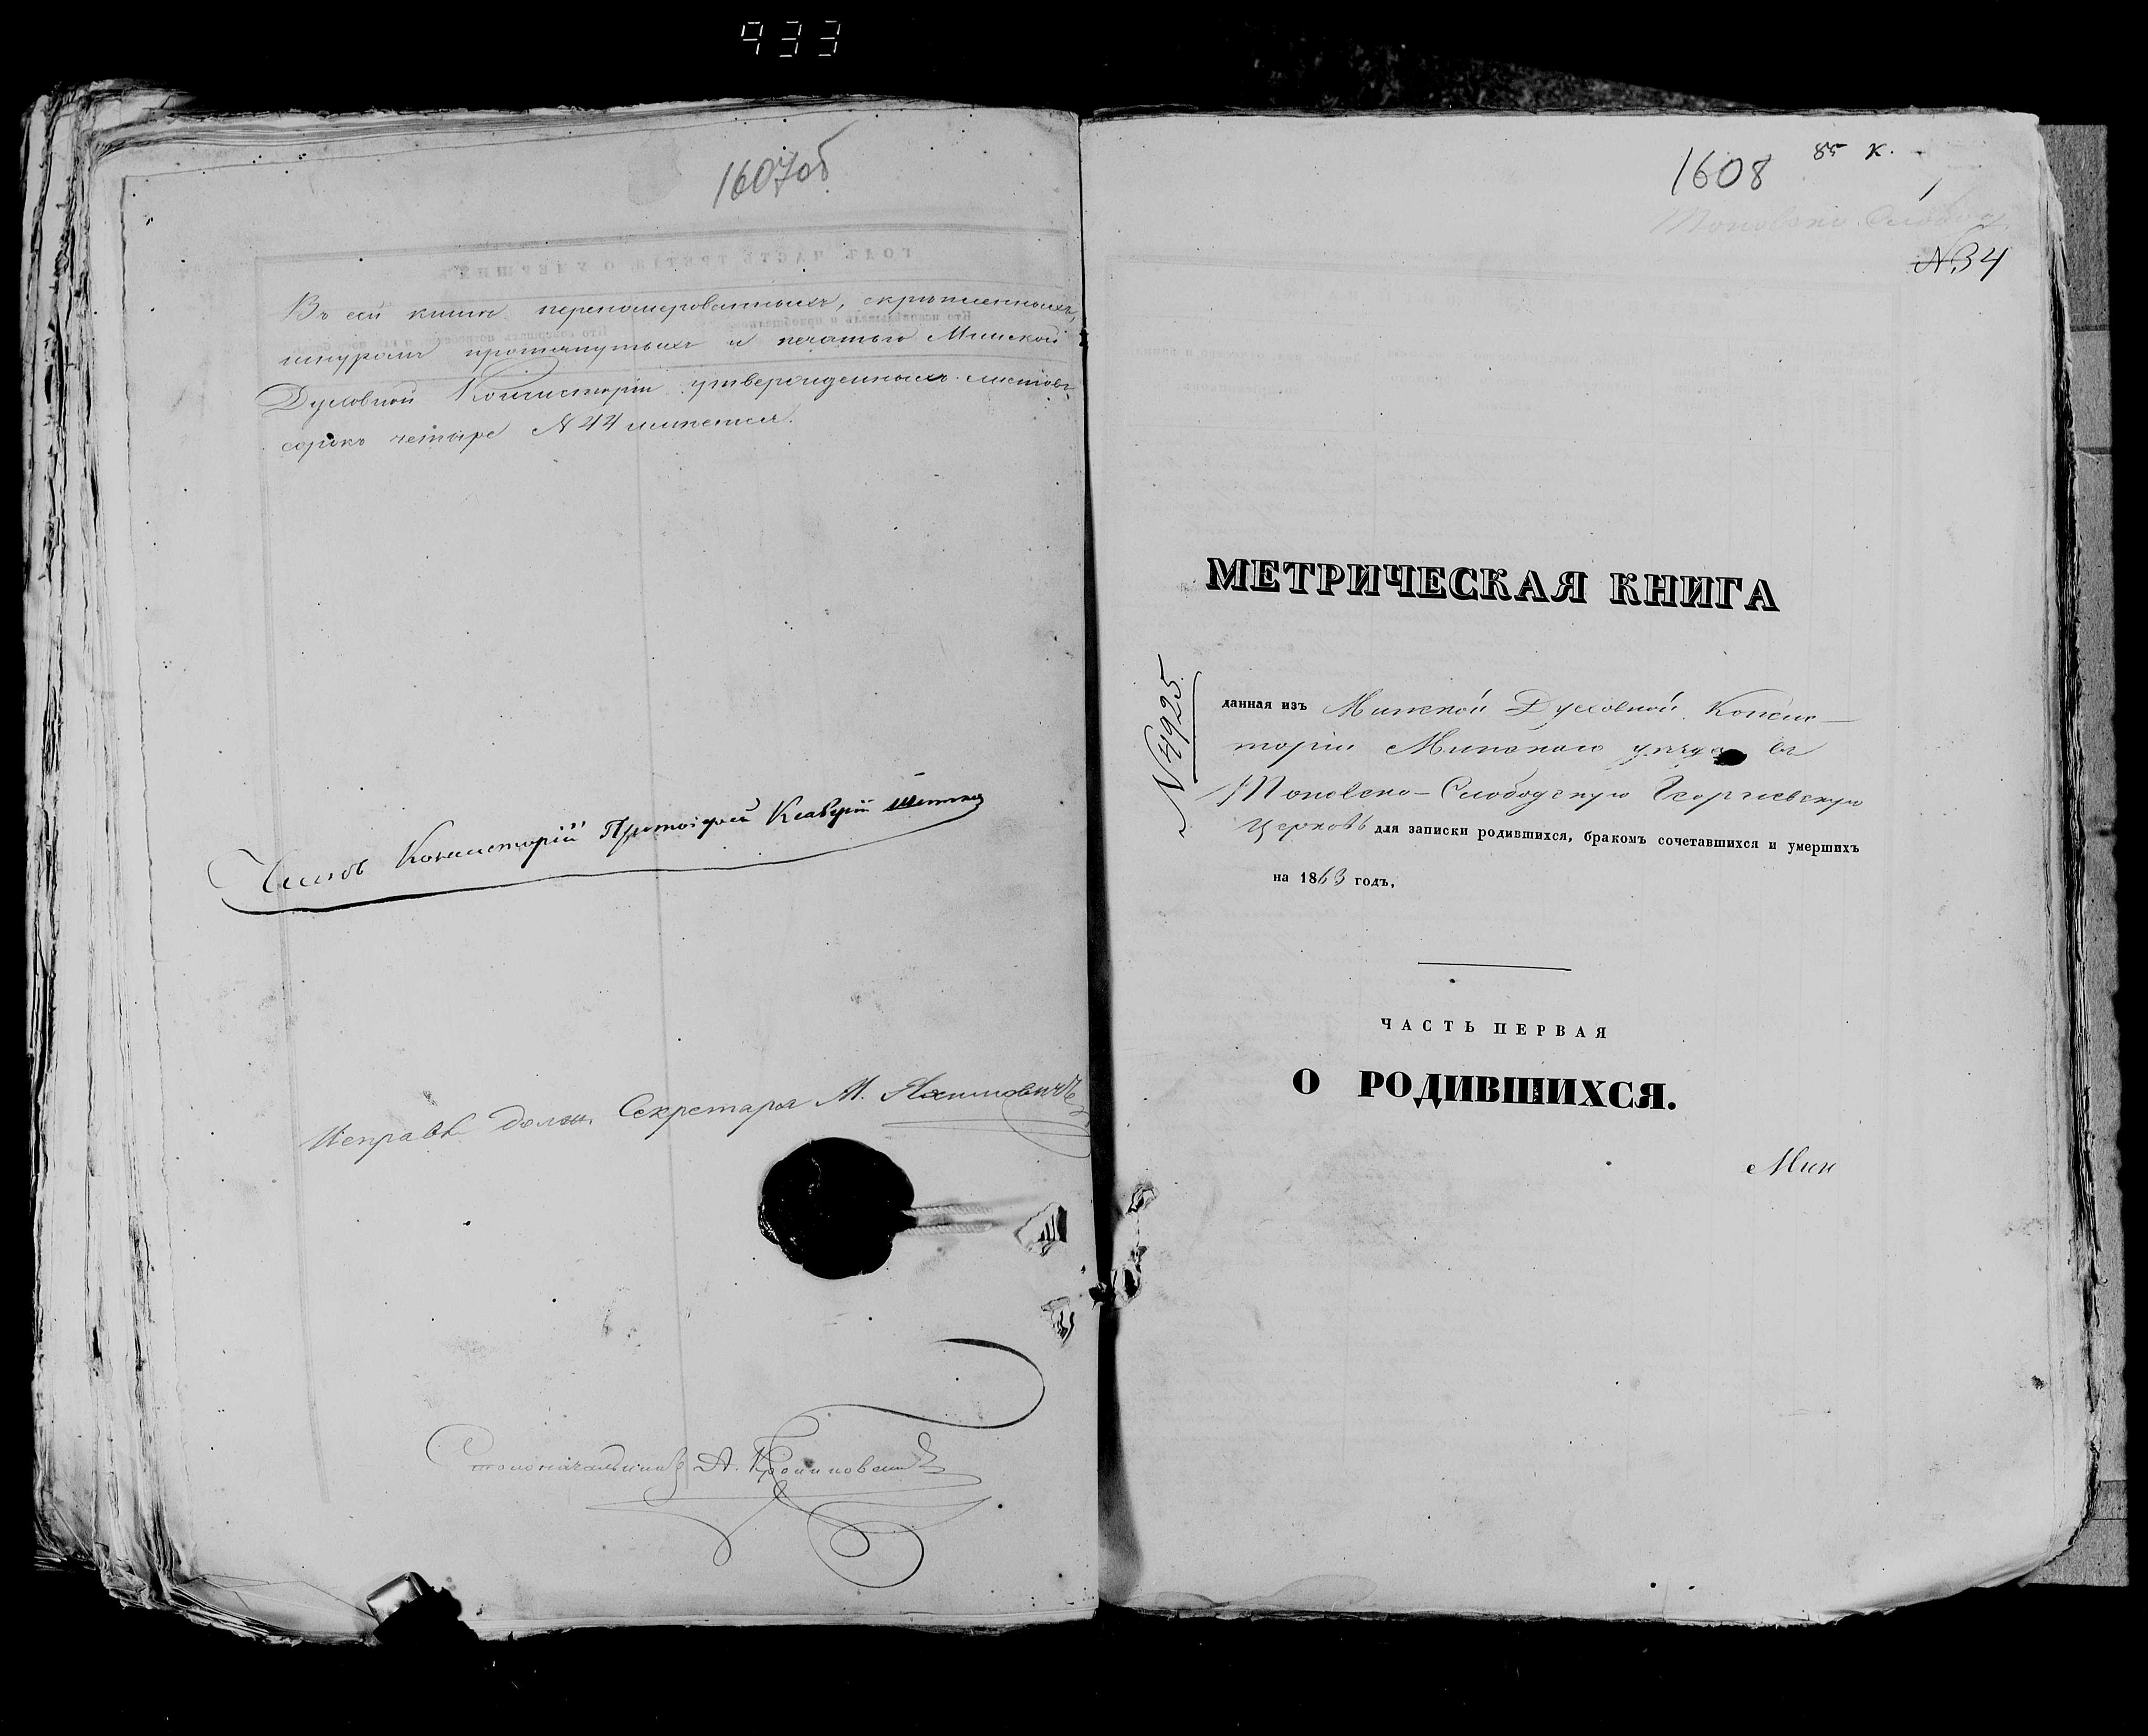 933
1607об
Въ сей книгѣ перенумерованныхъ, скрѣпленныхъ,
шнуромъ протянутыхъ и печатью Минской
Духовной Консисторіи утвержденныхъ листовъ
сорокъ четыре N 44 имѣется.
Членъ Консисторіи Протоіерей
Исправл. должн. Секретаря М.
Столоначальникъ А.
1608
85 к.
1
N. 34
МЕТРИЧЕСКАЯ КНИГА
N 4925.
данная изъ Минской Духовной Консис-
торіи Минскаго уѣзда въ
Поповско-Слободскую Георгіевскую
Церковь для записки родившихся, бракомъ сочетавшихся и умершихъ
на 1863 годъ,
ЧАСТЬ ПЕРВАЯ
О РОДИВШИХСЯ.
Мин